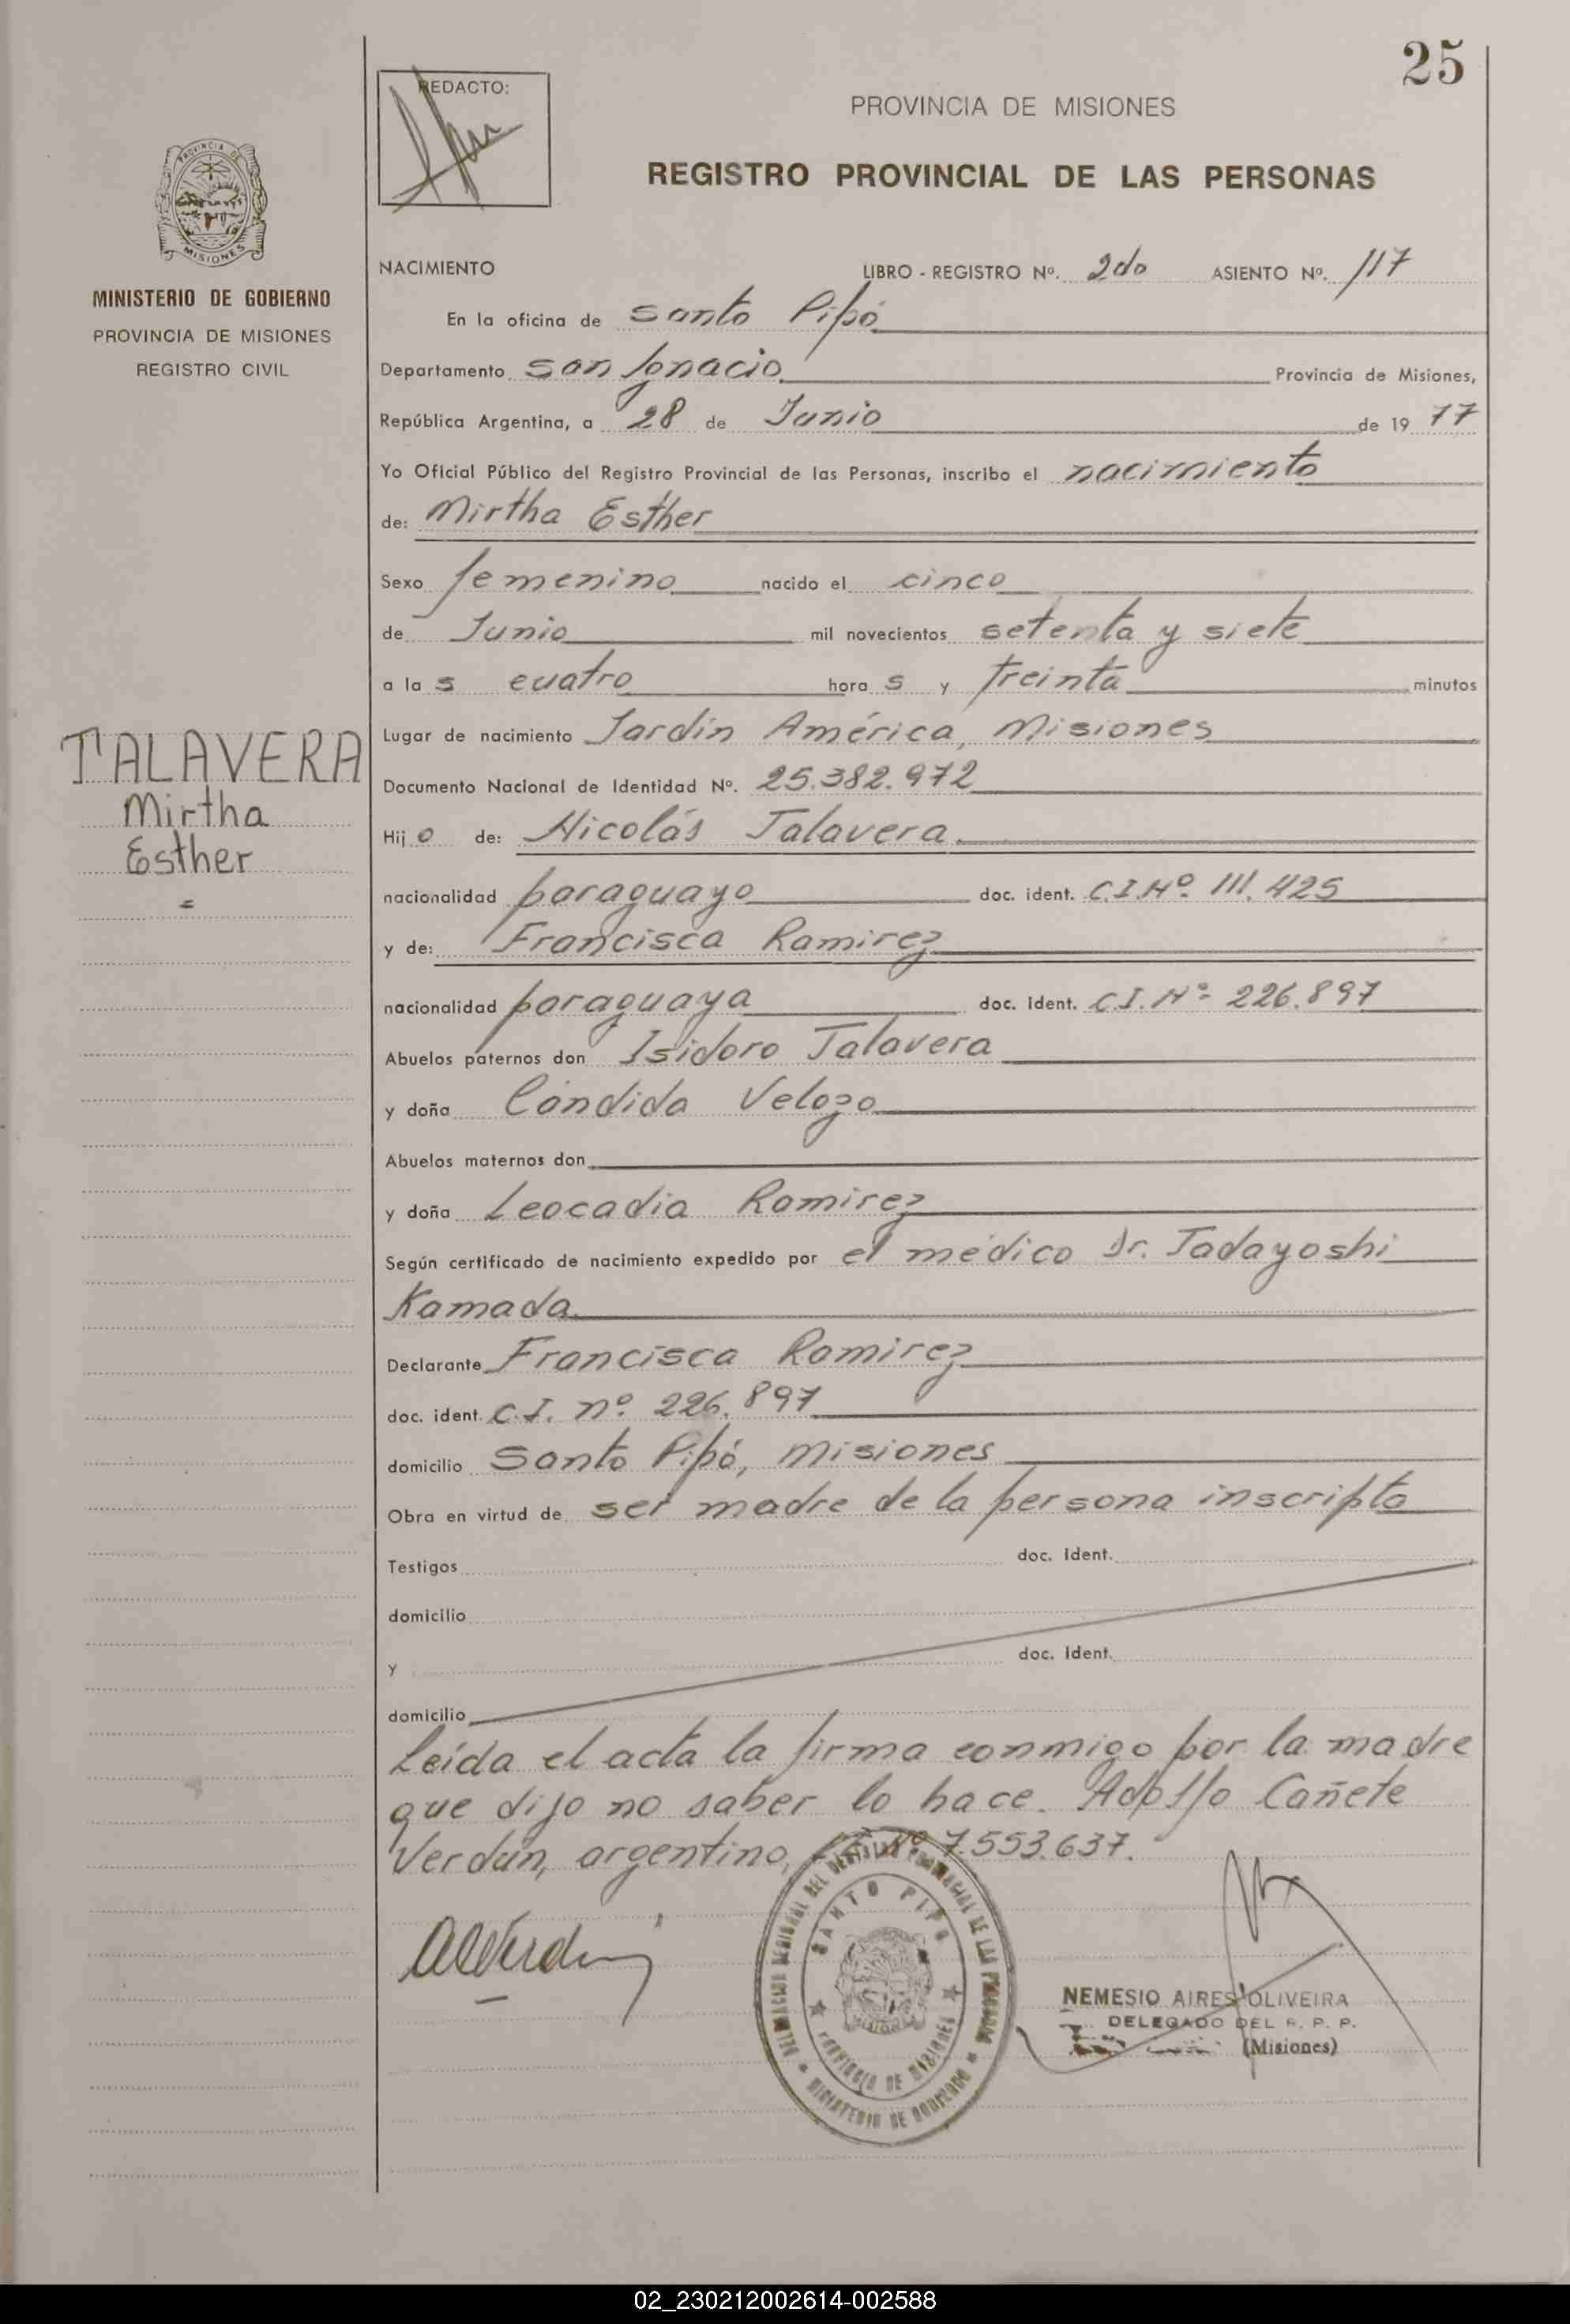 25
REDACTO:
PROVINCIA DE MISIONES
REGISTRO PROVINCIAL DE LAS PERSONAS
PROVINCIA DE
MISIONES
MINISTERIO DE GOBIERNO
PROVINCIA DE MISIONES
REGISTRO CIVIL
TALAVERA
Mirtha
Esther
=
NACIMIENTO LIBRO - REGISTRO Nº. 2do ASIENTO Nº. 117
En la oficina de Santo Pipó
Departamento San Ignacio Provincia de Misiones,
República Argentina, a 28 de Junio de 19 77
Yo Oficial Público del Registro Provincial de las Personas, inscribo el nacimiento
de: Mirtha Esther
Sexo femenino nacido el cinco
de Junio mil novecientos setenta y siete
a la s cuatro hora s y treinta minutos
Lugar de nacimiento Jardín América, Misiones
Documento Nacional de Identidad Nº. 25.382.972
Hij a de: Nicolás Talavera
nacionalidad paraguayo doc. ident. C.I.Nº. 111.425
y de: Francisca Ramirez
nacionalidad paraguaya doc. ident. C.I.Nº- 226.897
Abuelos paternos don Isidoro Talavera
y doña Cándida Velozo
Abuelos maternos don
y doña Leocadia Ramirez
Según certificado de nacimiento expedido por el médico Dr. Tadayoshi
Kamada
Declarante Francisca Ramirez
doc. ident. C.I. nº. 226.897
domicilio Santo Pipó, Misiones
Obra en virtud de ser madre de la persona inscripta
Testigos doc. ident.
domicilio
y doc. ident.
domicilio
Leída el acta la firma conmigo por la madre
que dijo no saber lo hace. Adolfo Cañete
Verdún, argentino, Nº 7.553.637.
SANTO PIPO
PROVINCIA DE MISIONES
MINISTERIO DE GOBIERNO
NEMESIO AIRES OLIVEIRA
DELEGADO DEL R. P. P.
(Misiones)
02_230212002614-002588